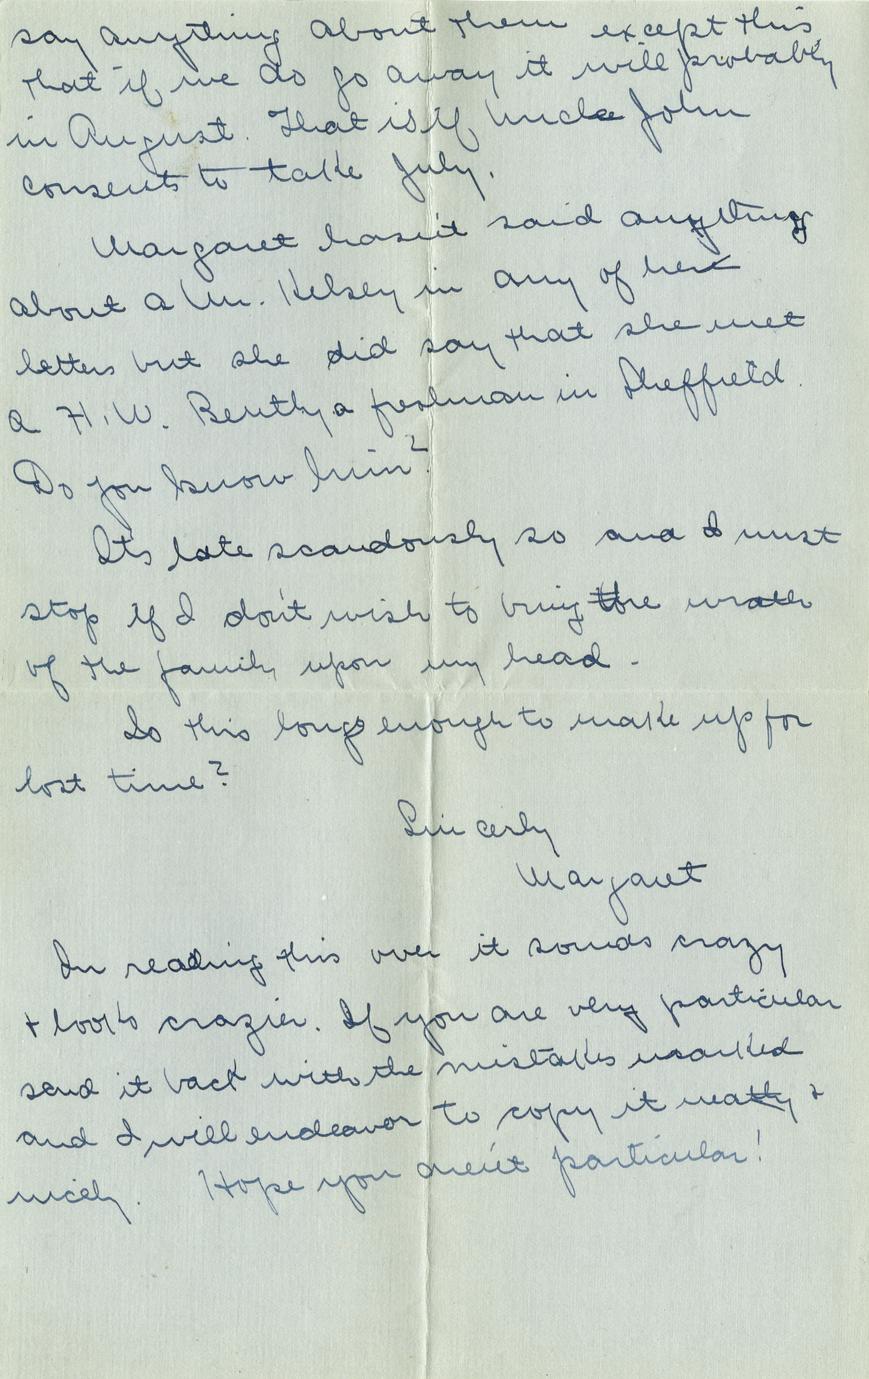 say anything about them except this
that if we do go away it will probably
in August. That is if Uncle John
consents to take July.
Margaret hasn't said anything
about a Mr. Kelsey in any of her
letters but she did say that she met
a H. W. Bently a freshman in Sheffield.
Do you know him?
It's late scandously so and I must
stop if I don't wish to bring the wrath
of the family upon my head.
Is this long enough to make up for
lost time?
Sincerly
Margaret
In reading this over it sounds crazy
+ looks crazier. If you are very particular
send it back with the mistakes marked
and I will endeavor to copy it neatly +
nicely. Hope you aren't particular!